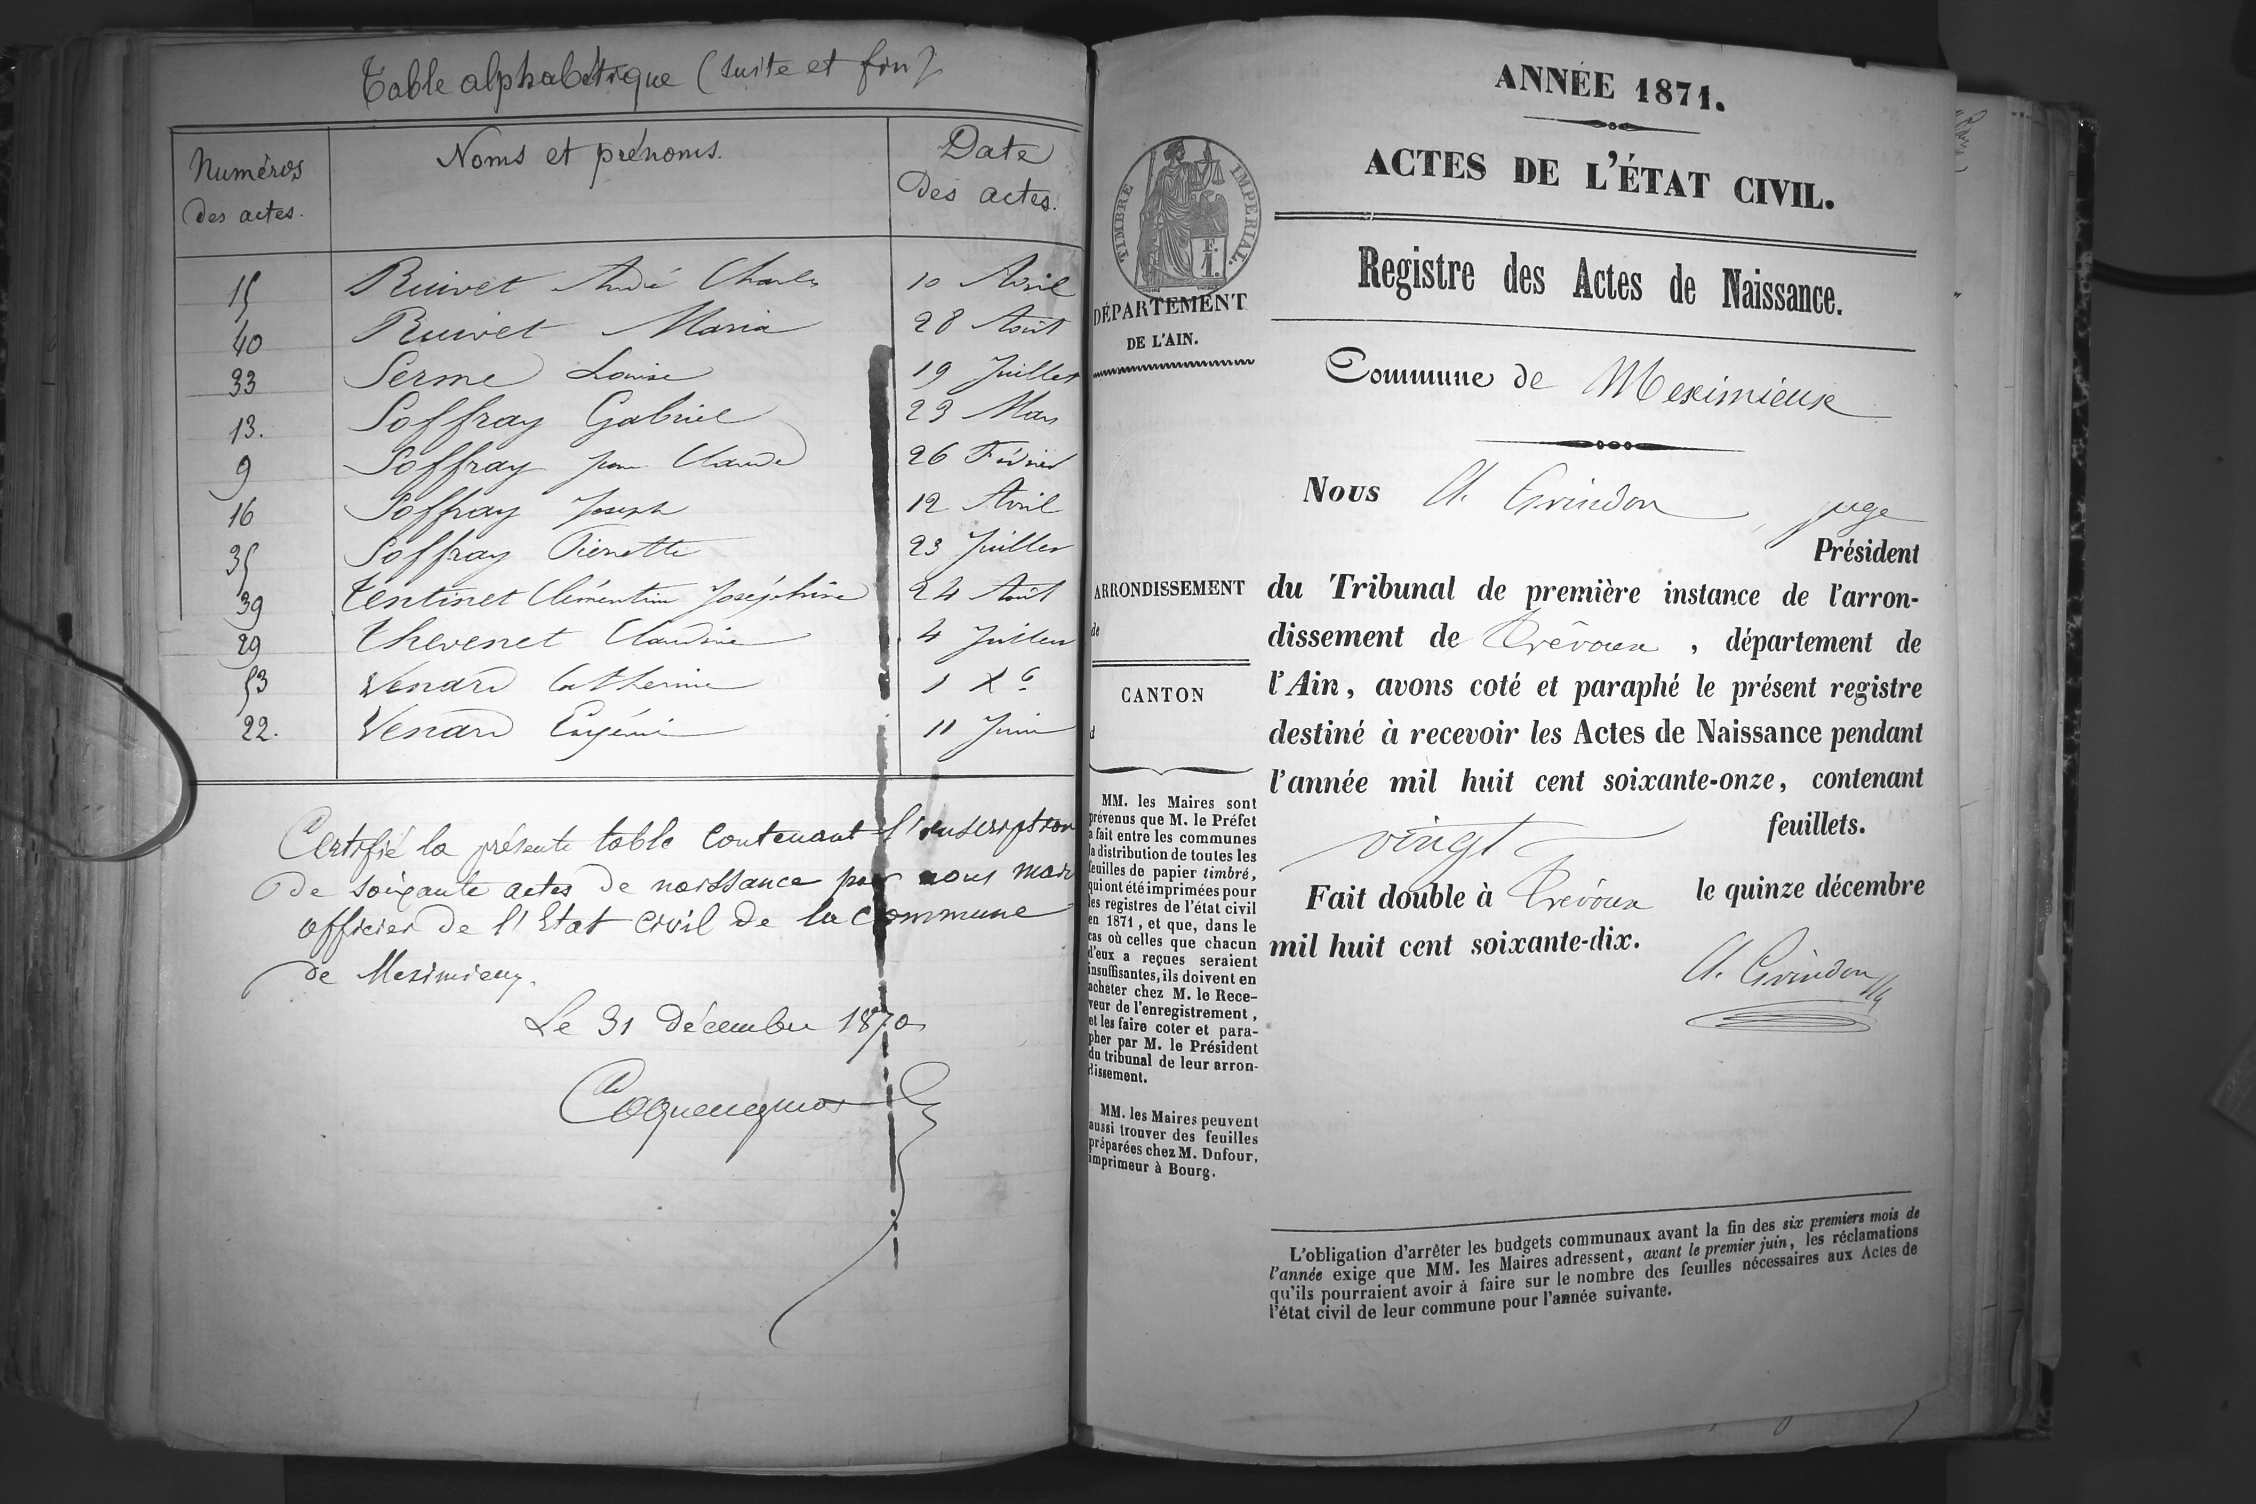 Table alphabétique (suite et fin)
Numéros des actes.
Noms et prénoms.
Date des actes.
15 Ruivet André Charles 10 Avril
40 Ruivet Maria 28 Août
33 Serme Louise 19 Juillet
13. Soffray Gabriel 23 Mars
9 Soffray Jean Claude 26 Février
16 Soffray Joseph 12 Avril
35 Soffray Pierrette 23 Juillet
39 Tentinet Clémentine Joséphine 24 Août
29 Thevenet Claudine 4 Juillet
53 Venard Catherine 1 Xbre
22. Venard Eugénie 11 Juin
Certifié la présente table contenant l'inscription
de soixante actes de naissance par nous maire
officier de l'Etat civil de la commune
de Meximieux.
Le 31 décembre 1870
ANNÉE 1871.
ACTES DE L'ÉTAT CIVIL.
TIMBRE IMPERIAL.
F.
1.
DÉPARTEMENT
DE L'AIN.
Registre des Actes de Naissance.
Commune de Meximieux
Nous A. Grindon, juge
Président
ARRONDISSEMENT
de
CANTON
d
du Tribunal de première instance de l'arron-
dissement de Trévoux, département de
l'Ain, avons coté et paraphé le présent registre
destiné à recevoir les Actes de Naissance pendant
l'année mil huit cent soixante-onze, contenant
vingt feuillets.
Fait double à Trévoux le quinze décembre
mil huit cent soixante-dix.
A. Grindon
MM. les Maires sont
prévenus que M. le Préfet
a fait entre les communes
la distribution de toutes les
feuilles de papier timbré,
qui ont été imprimées pour
les registres de l'état civil
en 1871, et que, dans le
cas où celles que chacun
d'eux a reçues seraient
insuffisantes, ils doivent en
acheter chez M. le Rece-
veur de l'enregistrement,
et les faire coter et para-
pher par M. le Président
du tribunal de leur arron-
dissement.
MM. les Maires peuvent
aussi trouver des feuilles
préparées chez M. Dufour,
imprimeur à Bourg.
L'obligation d'arrêter les budgets communaux avant la fin des six premiers mois de
l'année exige que MM. les Maires adressent, avant le premier juin, les réclamations
qu'ils pourraient avoir à faire sur le nombre des feuilles nécessaires aux Actes de
l'état civil de leur commune pour l'année suivante.